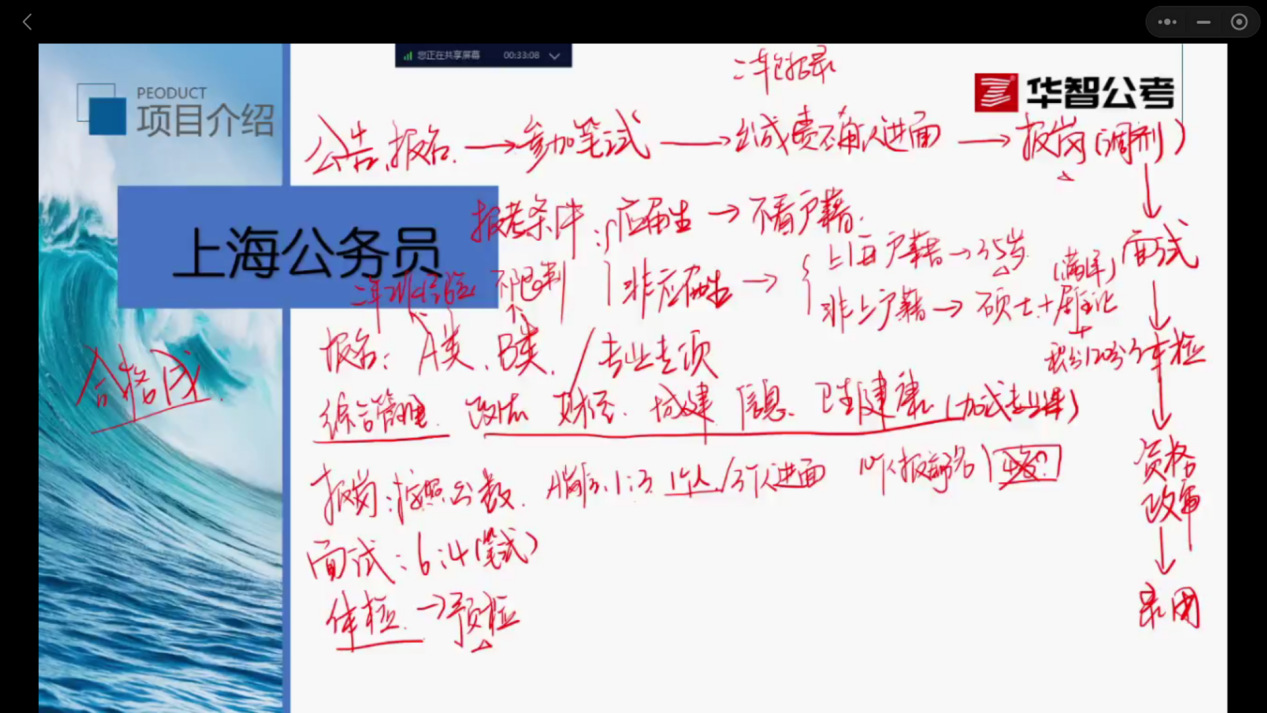 您正在共享屏幕 00:33:08
PEODUCT
项目介绍
华智公考
公告 报名 → 参加笔试 → 出成绩 确认进面 → 报岗(调剂)
上海公务员
报考条件: 应届生 → 不看户籍.
非应届生 →
上海户籍 → 35岁
非上户籍 → 硕士+居住证
(满1年)
积分120分
不限制
报名: A类、B类. / 专业专项
合格成
综合管理 政法 财经、城建 信息、卫生健康 (加试专业课)
报岗: 按照分数. 1:3 1个人/3个人进面 10个人报名
面试: 6:4(笔试)
体检 → 预检
面试
体检
资格
政审
录用